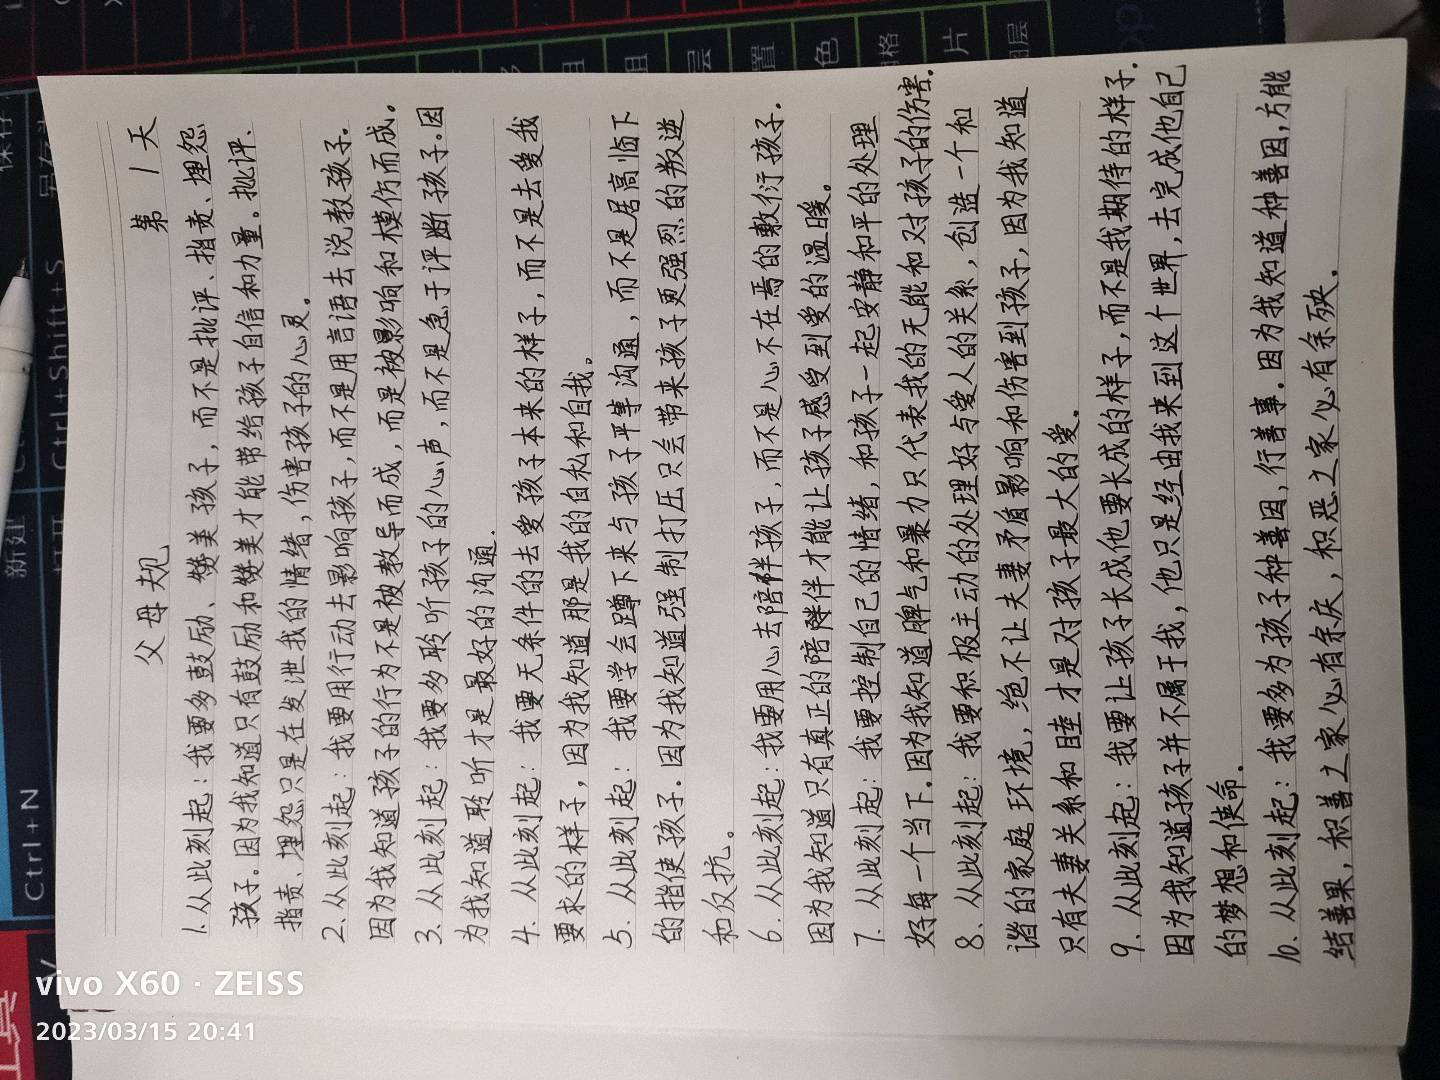 父母规 第1天
1.从此刻起：我要多鼓励、赞美孩子，而不是批评、指责、埋怨
孩子.因为我知道只有鼓励和赞美才能带给孩子自信和力量。批评、
指责、埋怨只是在发泄我的情绪，伤害孩子的心灵。
2.从此刻起：我要用行动去影响孩子，而不是用言语去说教孩子.
因为我知道孩子的行为不是被教导而成，而是被影响和模仿而成。
3.从此刻起：我要多聆听孩子的心声，而不是急于评断孩子.因
为我知道聆听才是最好的沟通.
4.从此刻起：我要无条件的去爱孩子本来的样子，而不是去爱我
要求的样子，因为我知道那是我的自私和自我。
5.从此刻起：我要学会蹲下来与孩子平等沟通，而不是居高临下
的指使孩子.因为我知道强制打压只会带来孩子更强烈的叛逆
和反抗。
6.从此刻起：我要用心去陪伴孩子，而不是心不在焉的敷衍孩子.
因为我知道只有真正的陪伴才能让孩子感受到爱的温暖。
7.从此刻起：我要控制自己的情绪，和孩子一起安静和平的处理
好每一个当下.因为我知道脾气和暴力只代表我的无能和对孩子的伤害.
8.从此刻起：我要积极主动的处理好与爱人的关系，创造一个和
谐的家庭环境，绝不让夫妻矛盾影响和伤害到孩子，因为我知道
只有夫妻关系和睦才是对孩子最大的爱。
9.从此刻起：我要让孩子长成他要长成的样子，而不是我期待的样子.
因为我知道孩子并不属于我，他只是经由我来到这个世界，去完成他自己
的梦想和使命.
10.从此刻起：我要多为孩子种善因，行善事.因为我知道种善因，方能
结善果，积善之家必有余庆，积恶之家必有余殃.
vivo X60 · ZEISS
2023/03/15 20:41
新建
Ctrl+N
Ctrl+Shift+S
保存
层
置
色
片
图层